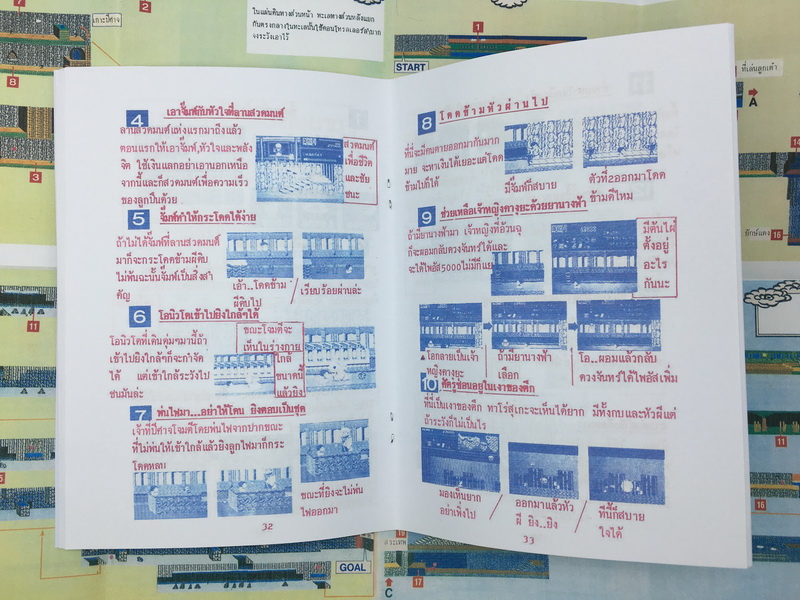 ในแผ่นดินทางส่วนหน้า ทะเลทางส่วนหลังแยก
กันตรงกลางในทะเลนั้นใช้คอนโทรลเลอร์ลำบาก
จงระวังเอาไว้
START
4 เอาจั๊มพ์กับหัวใจที่ลานสวดมนต์
ลานสวดมนต์แห่งแรกมาถึงแล้ว
ตอนแรกให้เอาจั๊มพ์,หัวใจและพลัง
จิต ใช้เงินแลกอย่าเอานอกเหนือ
จากนี้และก็สวดมนต์เพื่อความเร็ว
ของลูกปืนด้วย
สวดมนต์
เพื่อชีวิต
และชัย
ชนะ
5 จั๊มพ์ทำให้กระโดดได้ง่าย
ถ้าไม่ได้จั๊มพ์ที่ลานสวดมนต์
มาก็จะกระโดดข้ามผีดิบ
ไม่พ้นฉะนั้นจั๊มพ์เป็นสิ่งสำ
คัญ
เอ้า..โดดข้าม
ผีดิบไป
เรียบร้อยผ่านล่ะ
6 โอนิวโดเข้าไปยิงใกล้ๆได้
โอนิวโดที่เดินดุ่มๆมานี้ถ้า
เข้าไปยิงใกล้ๆก็จะกำจัด
ได้ แต่เข้าใกล้ระวังไป
ชนมันล่ะ
ขณะโจมตีจะ
เห็นในร่างกาย
ใกล้
ขนาดนี้
แล้วยิง
7 พ่นไฟมา...อย่าให้โดน ยิงตอบเป็นชุด
เจ้าที่ปีศาจโจมตีโดยพ่นไฟจากปากขณะ
ที่ไม่พ่นให้เข้าใกล้แล้วยิงลูกไฟมาก็กระ
โดดหลบ
ขณะที่ยิงจะไม่พ่น
ไฟออกมา
32
8 โดดข้ามหัวผ่านไป
ที่นี่จะมีคนตายออกมากันมาก
มาย จะหาเงินได้เยอะแต่โดด
ข้ามไปก็ได้
มีจั๊มพ์ก็สบาย
ตัวที่2ออกมาโดด
ข้ามดีไหม
9 ช่วยเหลือเจ้าหญิงคางุยะด้วยยานางฟ้า
ถ้ามียานางฟ้ามา เจ้าหญิงที่อ้วนฉุ
ก็จะผอมกลับดวงจันทร์ได้และ
จะได้ไพลัส5000ไม่มีก็แย่
มีต้นไผ่
ตั้งอยู่
อะไร
กันนะ
โอกลายเป็นเจ้า
หญิงคางุยะ
ถ้ามียานางฟ้า
เลือก
โอ..ผอมแล้วกลับ
ดวงจันทร์ได้ไพลัสเพิ่ม
10 ศัตรูซ่อนอยู่ในเงาของตึก
ที่นี่เป็นเงาของตึก ทาโร่สุเกะจะเห็นได้ยาก มีทั้งกบและหัวผีแต่
ถ้าระวังก็ไม่เป็นไร
มองเห็นยาก
อย่าเพิ่งไป
ออกมาแล้วหัว
ผี ยิง..ยิง
ที่นี่ก็สบาย
ใจได้
33
ที่เล่นลูกเต๋า
A
ยักษ์แดง
16
11
11
16
17
C
GOAL
1
2
8
3